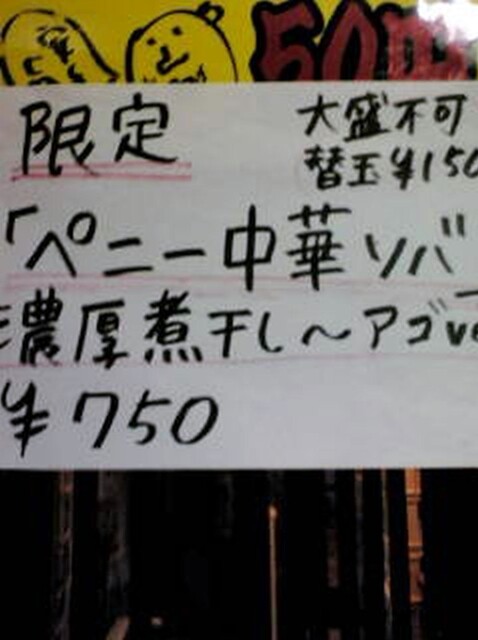 50
限定
大盛不可
替玉¥150
「ペニー中華ソバ」
濃厚煮干し〜アゴve
¥750